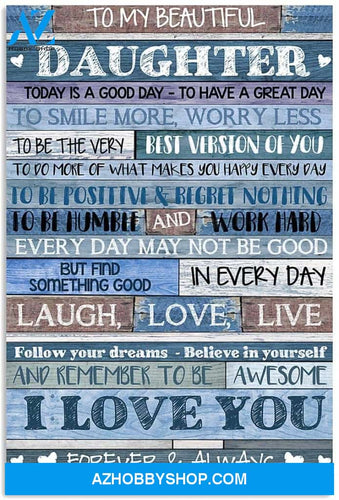 TO MY BEAUTIFUL
DAUGHTER
TODAY IS A GOOD DAY - TO HAVE A GREAT DAY
TO SMILE MORE, WORRY LESS
TO BE THE VERY BEST VERSION OF YOU
TO DO MORE OF WHAT MAKES YOU HAPPY EVERY DAY
TO BE POSITIVE & REGRET NOTHING
TO BE HUMBLE AND WORK HARD
EVERY DAY MAY NOT BE GOOD
BUT FIND
SOMETHING GOOD
IN EVERY DAY
LAUGH, LOVE, LIVE
Follow your dreams - Believe in yourself
AND REMEMBER TO BE AWESOME
I LOVE YOU
FOREVER & ALWAYS
AZHOBBYSHOP.COM